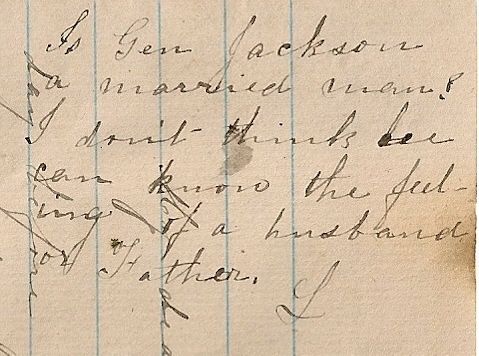 Is Gen Jackson
a married man?
I don't think he
can know the feel-
ing of a husband
or Father.
L